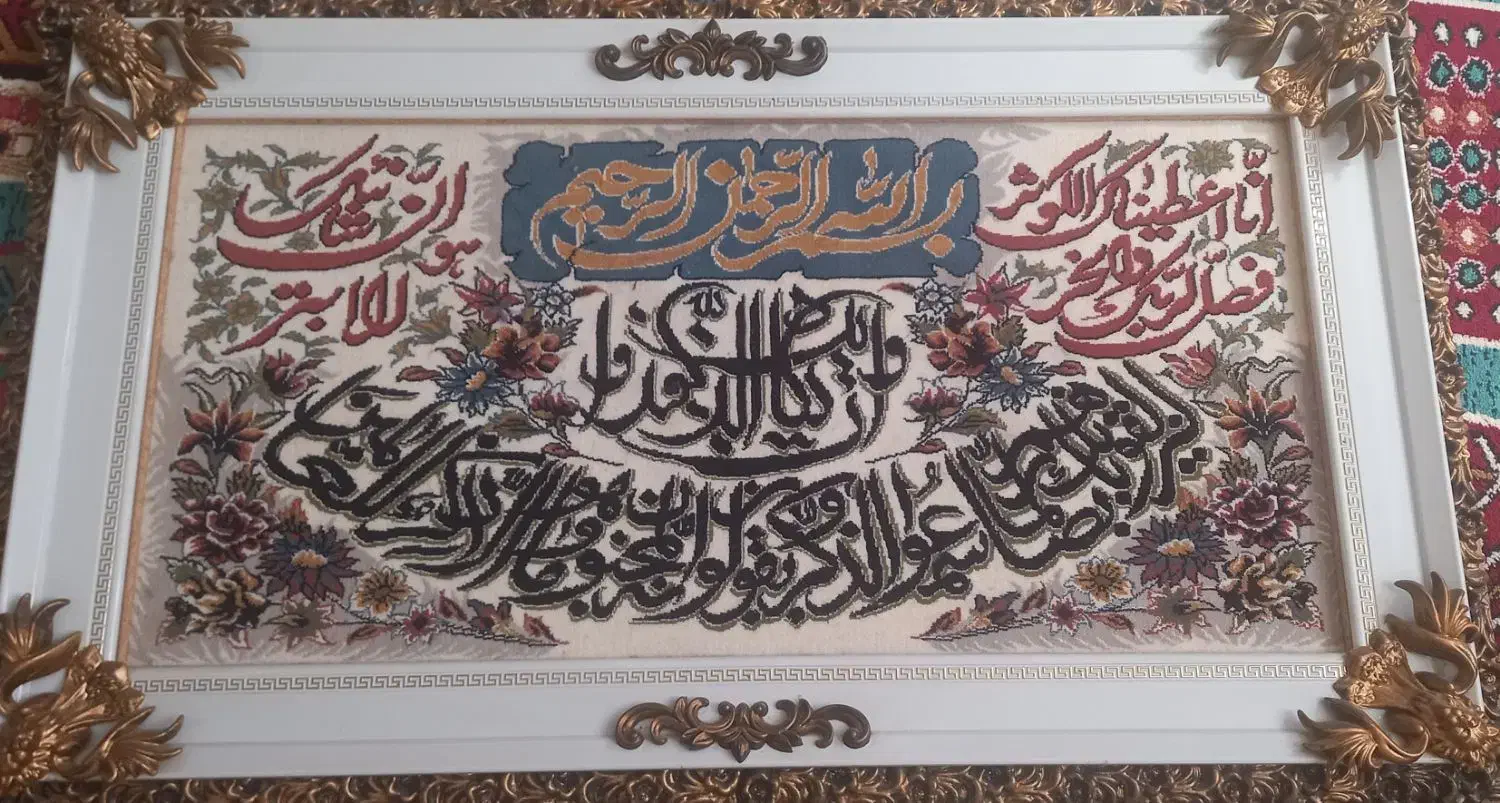 بسم الله الرحمن الرحیم
انّا اعطیناک الکوثر
فصلّ لربّک وانحر
انّ شانئک
هو
الا ابتر
و ان یکاد الذین کفروا
لیزلقونک بابصارهم لمّا سمعوا الذکر و یقولون انه لمجنون و ما هو الا ذکر للعالمین